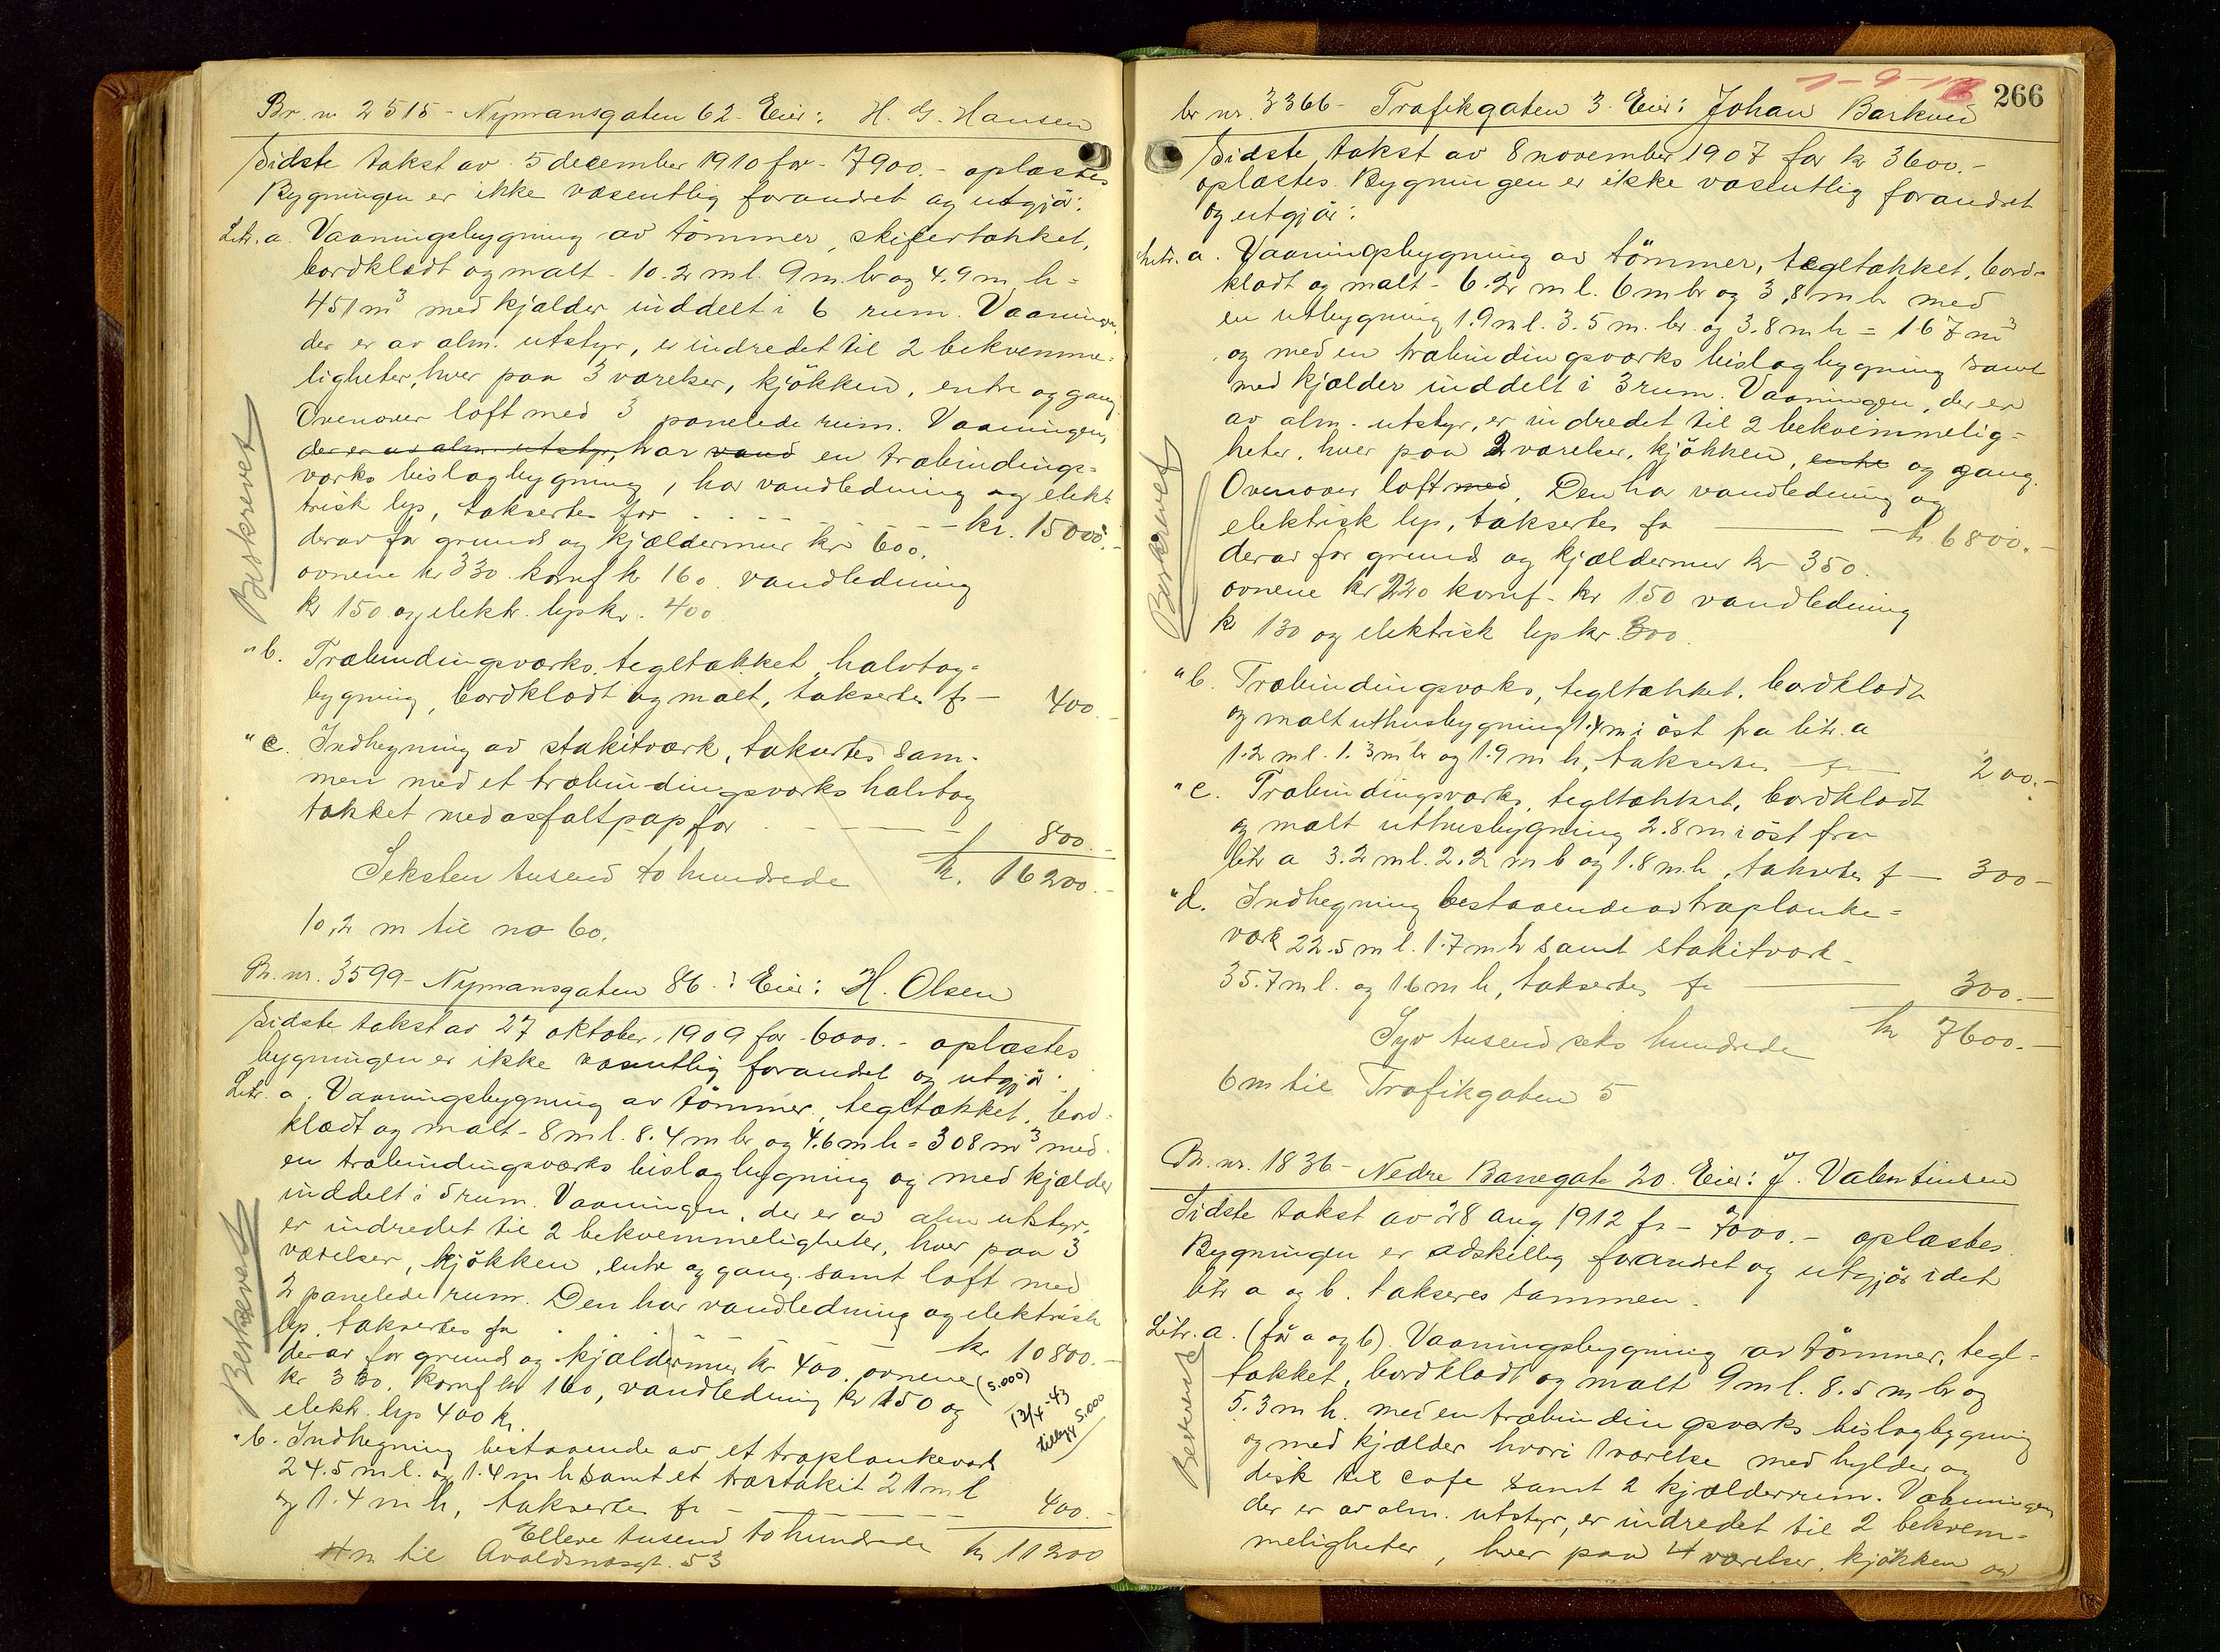 Br. nr 2515 - Nymansgaten 62. Eier: H. G. Hansen
Sidste takst av 5 december 1910 for - 7900.- oplæstes
Bygningen er ikke væsentlig forandret og utgjör:
Litr. a. Vaaningsbygning av tömmer, skifertækket,
bordklædt og malt - 10.2 m l. 9 m. br og 4.9 m h =
451 m³ med kjælder inddelt i 6 rum. Vaaningen,
der er av alm. utstyr, er indredet til 2 bekvemme-
ligheter, hver paa 3 værelser, kjökken, entre og gang
Ovenover loft med 3 panelede rum. Vaaningen,
der er av alm. utstyr, har vand en træbindings-
værks bislagbygning, har vandledning og elek-
trisk lys, takseres for kr. 15000.-
derav for grund og kjældermur kr 600,
ovnene kr 330 komf kr 160. vandledning
kr 150 og elektr. lys kr. 400
Beskrevet
" b. Træbindingsværks, tegltækket, halvtag-
bygning, bordklædt og malt, takseres fr - 400.-
" c. Indhegning av stakitværk, takseres sam-
men med et træbindingsværks halvtag
tækket med asfaltpap for 800.-
Seksten tusend to hundrede kr. 16200.-
10,2 m til no 60.
Br. nr. 3599 - Nymansgaten 86. Eier: H. Olsen
Sidste takst av 27 oktober 1909 for 6000.- oplæstes
bygningen er ikke væsentlig forandret og utgjör:
Litr. a. Vaaningsbygning av tömmer, tegltækket, bord-
klædt og malt - 8 m l. 8.4 m br og 4.6 m h = 308 m³ med
en træbindingsværks bislagbygning og med kjælder
inddelt i 5 rum. Vaaningen, der er av alm utstyr,
er indredet til 2 bekvemmeligheter, hver paa 3
værelser, kjökken, entre og gang samt loft med
2 panelede rum. Den har vandledning og elektrisk
lys, takseres for kr 10800.-
derav for grund og kjældermur kr 400. ovnene (5.000)
kr 330, komf kr 160, vandledning kr 150 og
elektr. lys 400 kr.
13/4-43
tillegg 5.000
Beskrevet
" b. Indhegning bestaaende av et træplankeværk
24.5 m l. og 1.4 m h samt et træstakit 21 m l
og 1.4 m h, takseres fr - 400.-
Elleve tusend to hundrede kr 11200
4 m til Avaldsnesgt. 53
1-9-16
266
br nr. 3366 - Trafikgaten 3. Eier: Johan Barkved
Sidste takst av 8 november 1907 for kr 3600.-
oplæstes. Bygningen er ikke væsentlig forandret
og utgjör:
Litr. a. Vaaningsbygning av tömmer, tegltækket, bord-
klædt og malt - 6.2 m l. 6 m br og 3,8 m h med
en utbygning 1.9 m l. 3.5 m. br. og 3.8 m h = 167 m³
og med en træbindingsværks bislagbygning samt
med kjælder inddelt i 3 rum. Vaaningen, der er
av alm. utstyr, er indredet til 2 bekvemmelig-
heter, hver paa 2 værelser, kjökken, entre og gang.
Ovenover loft med. Den har vandledning og
elektrisk lys, takseres fr kr. 6800.-
derav for grund og kjældermur kr 350.
ovnene kr 220 komf. kr 150 vandledning
kr 130 og elektrisk lys kr. 300.
Beskrevet
" b. Træbindingsværks, tegltækket, bordklædt
og malt uthusbygning 1.4 m i öst fra litr. a
1.2 m l. 1.3 m br og 1.9 m h, takseres fr 200.-
" c. Træbindingsværks, tegltækket, bordklædt
og malt uthusbygning 2.8 m i öst fra
litr a 3.2 m l. 2.2 m b og 1.8 m h, takseres f - 300 -
" d. Indhegning bestaaende av træplanke-
værk 22.5 m l. 1.7 m h samt stakitværk
35.7 m l. og 16 m h, takseres fr 300.-
Syv tusend seks hundrede kr 7600.-
6 m til Trafikgaten 5
Br. nr. 1836 - Nedre Banegate 20. Eier: J. Valentinsen
Sidste takst av 28 aug 1912 fr - 7000.- oplæstes.
Bygningen er adskillig forandret og utgjör idet
litr a og b. takseres sammen.
Litr. a. (för a og b). Vaaningsbygning av tömmer, tegl-
tækket, bordklædt og malt 9 m l. 8.5 m br og
5.3 m h. med en træbindingsværks bislagbygning
og med kjælder hvori 1 værelse med hylder og
disk til cafe samt 2 kjælderrum. Vaaningen
der er av alm. utstyr, er indredet til 2 bekvem-
meligheter, hver paa 4 værelser, kjökken og
Beskrevet